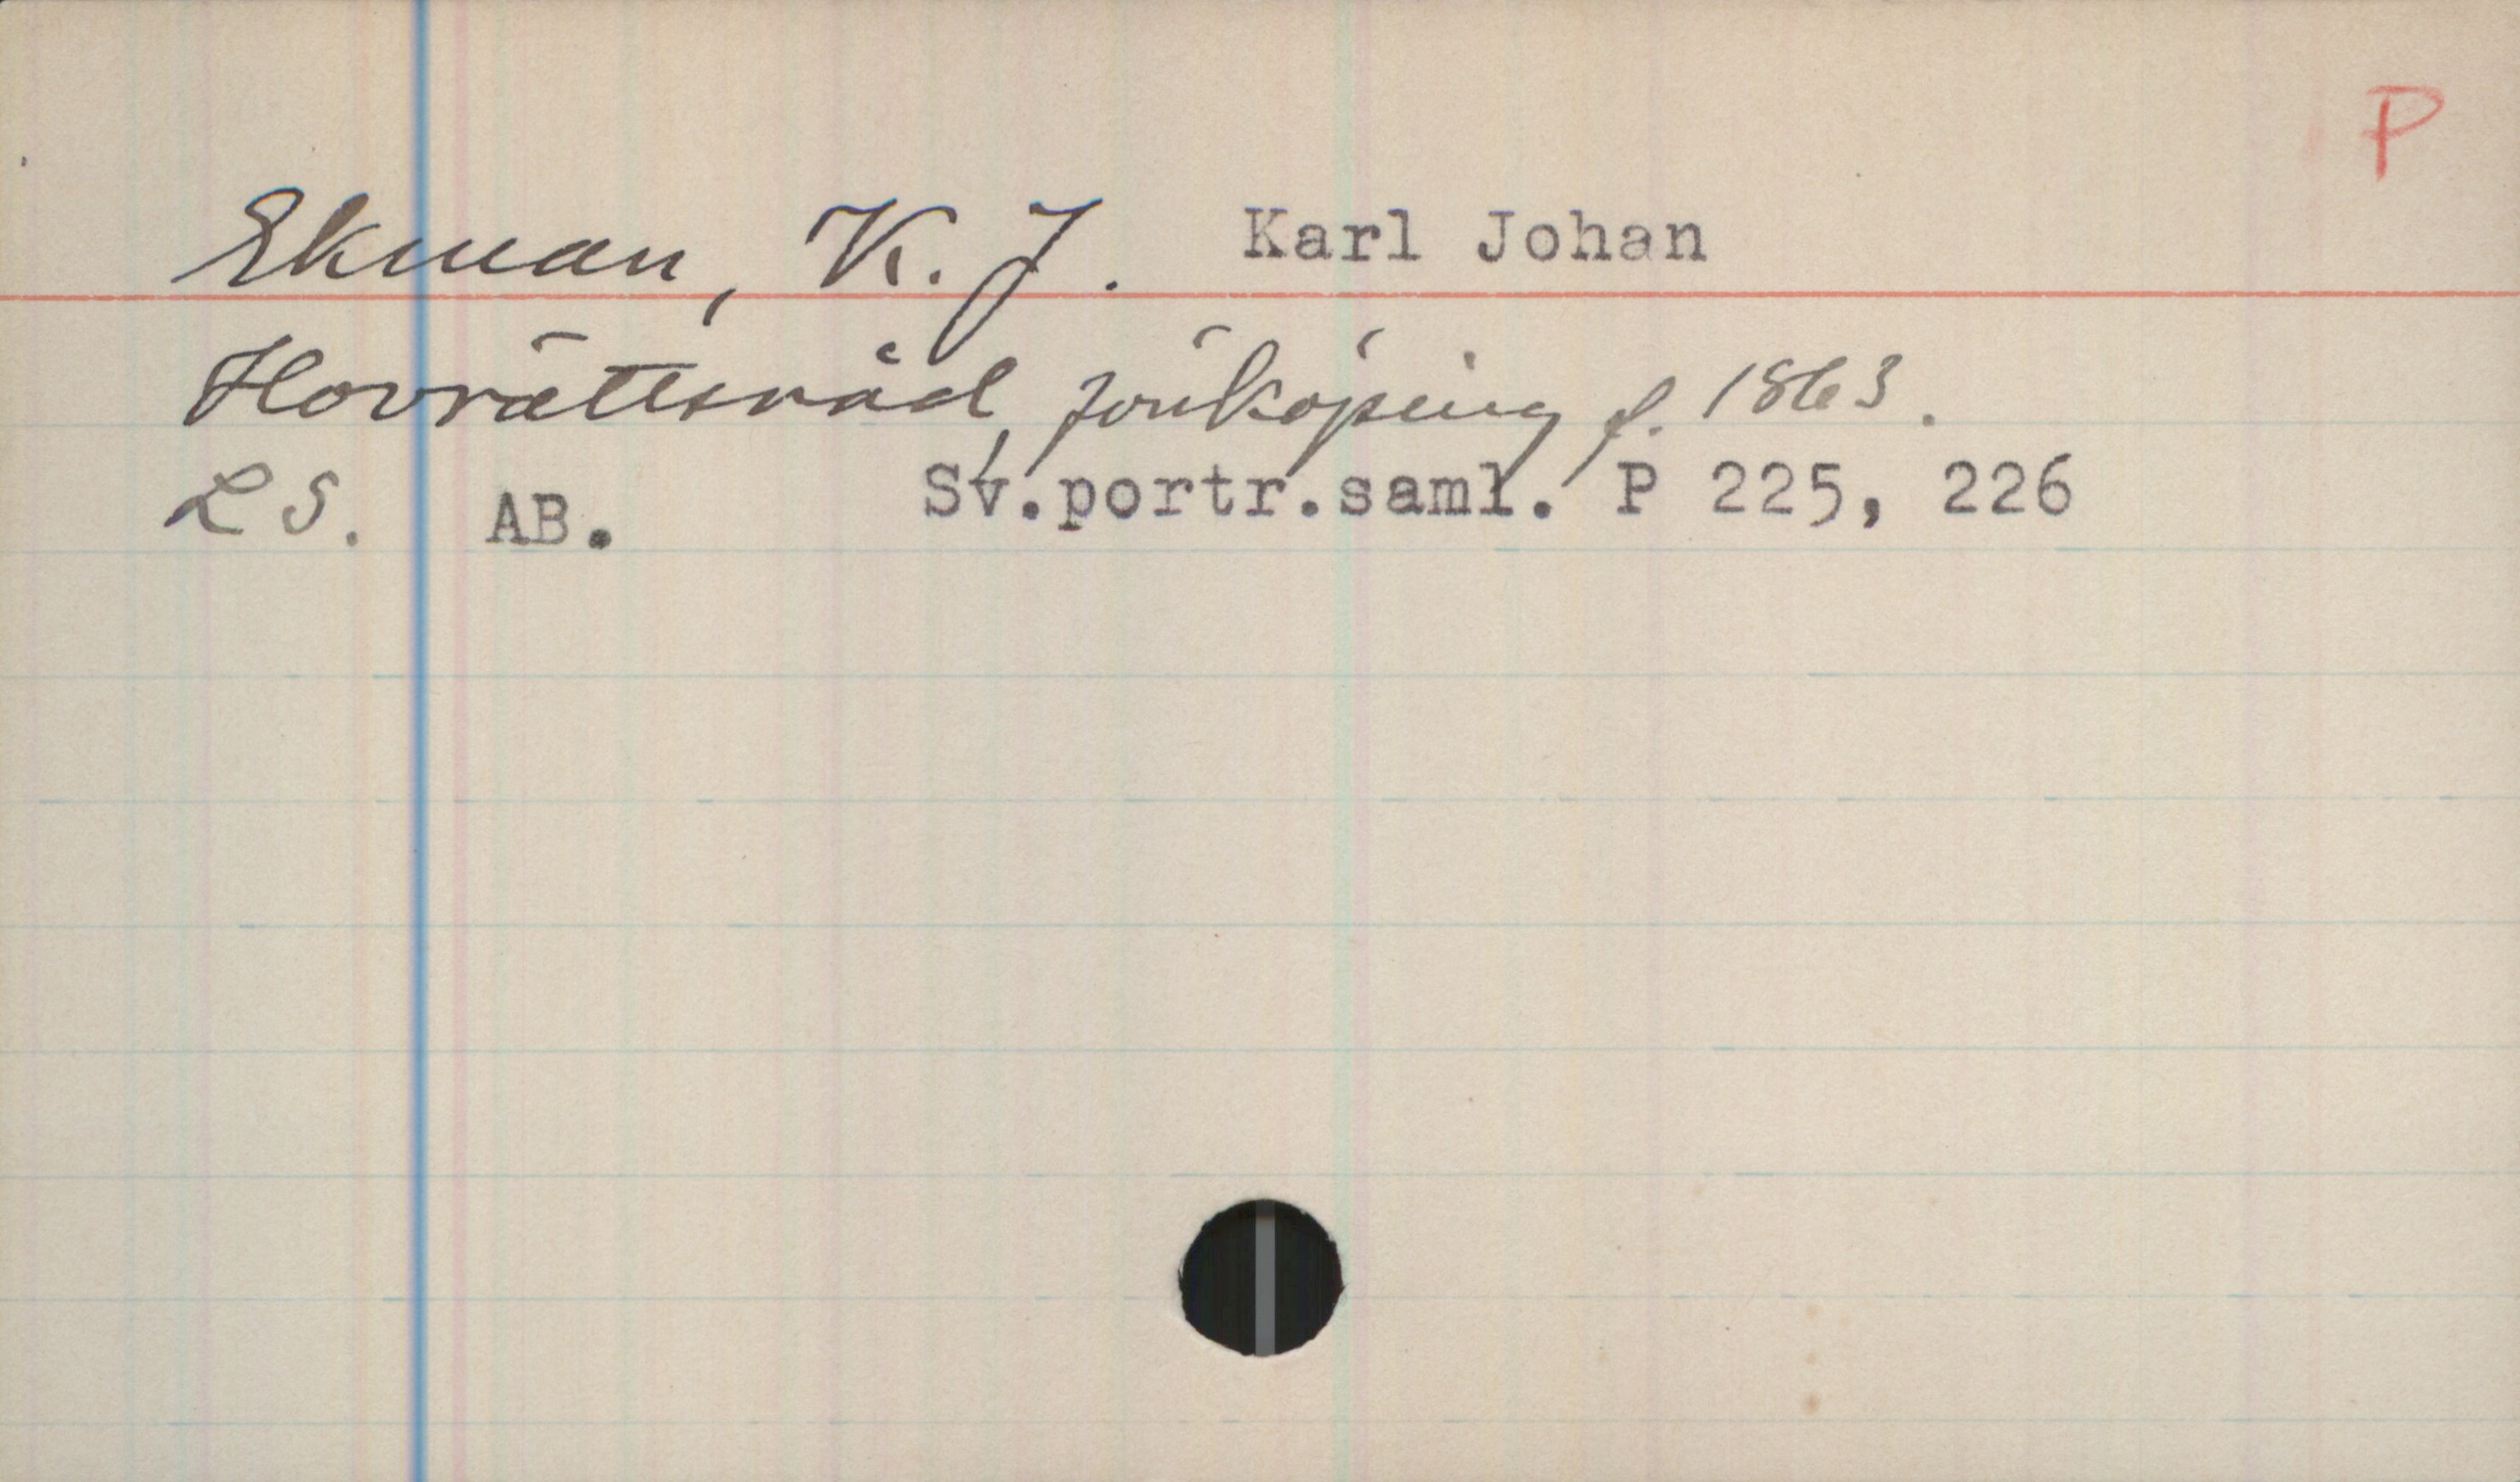 P
Ekman, K. J. Karl Johan
Hovrättsråd, Jönköping f. 1863.
L S. AB. Sv.portr.saml. P 225, 226